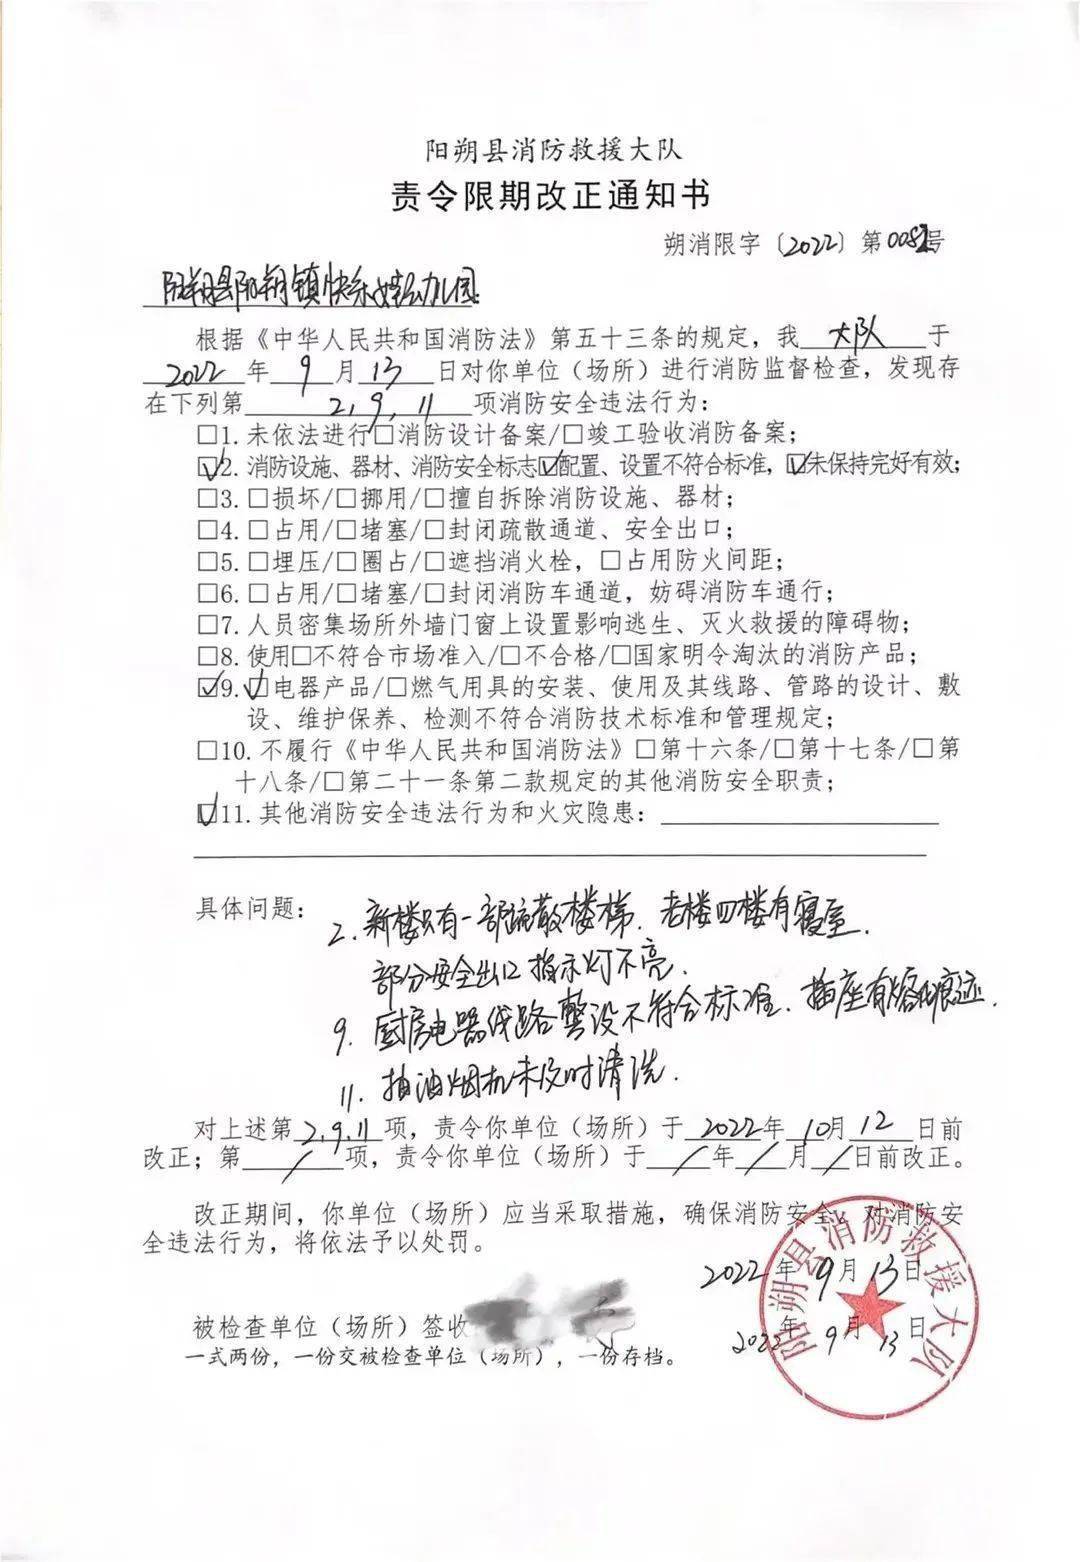 阳朔县消防救援大队
责令限期改正通知书
朔消限字〔2022〕第008号
阳朔县阳朔镇快乐幼儿园:
根据《中华人民共和国消防法》第五十三条的规定，我大队于
2022年9月13日对你单位（场所）进行消防监督检查，发现存
在下列第2,9,11项消防安全违法行为：
□1. 未依法进行□消防设计备案/□竣工验收消防备案；
☑2. 消防设施、器材、消防安全标志☑配置、设置不符合标准，☑未保持完好有效；
□3. □损坏/□挪用/□擅自拆除消防设施、器材；
□4. □占用/□堵塞/□封闭疏散通道、安全出口；
□5. □埋压/□圈占/□遮挡消火栓，□占用防火间距；
□6. □占用/□堵塞/□封闭消防车通道，妨碍消防车通行；
□7. 人员密集场所外墙门窗上设置影响逃生、灭火救援的障碍物；
□8. 使用□不符合市场准入/□不合格/□国家明令淘汰的消防产品；
☑9. ☑电器产品/□燃气用具的安装、使用及其线路、管路的设计、敷
设、维护保养、检测不符合消防技术标准和管理规定；
□10. 不履行《中华人民共和国消防法》□第十六条/□第十七条/□第
十八条/□第二十一条第二款规定的其他消防安全职责；
☑11. 其他消防安全违法行为和火灾隐患：
具体问题：2. 新楼只有一部疏散楼梯. 老楼四楼有寝室.
部分安全出口指示灯不亮.
9. 厨房电器线路敷设不符合标准. 插座有熔化痕迹.
11. 抽油烟机未及时清洗.
对上述第2,9,11项，责令你单位（场所）于2022年10月12日前
改正；第/项，责令你单位（场所）于/年/月/日前改正。
改正期间，你单位（场所）应当采取措施，确保消防安全。对消防安
全违法行为，将依法予以处罚。
2022年9月13日
被检查单位（场所）签收
2022年9月13日
一式两份，一份交被检查单位（场所），一份存档。
阳朔县消防救援大队